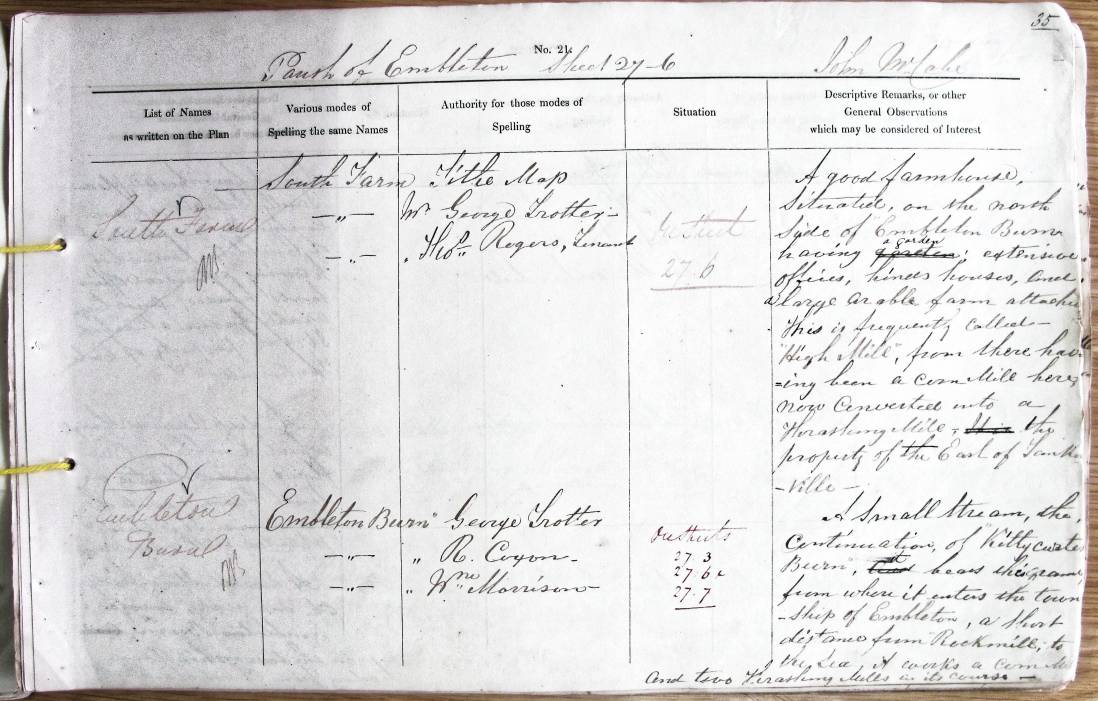 35
No. 21.
Parish of Embleton Sheet 27-6 John McCabe
List of Names
as written on the Plan
Various modes of
Spelling the same Names
Authority for those modes of
Spelling
Situation
Descriptive Remarks, or other
General Observations
which may be considered of Interest
South Farm
South Farm
—„—
—„—
Tithe Map
Mr George Trotter
„ Thos. Rogers, Tenant
27.6
A good farmhouse,
Situated, on the north
side of "Embleton Burn
having a garden; extensive
offices, hinds houses, and
a large arable farm attached
This is frequently called
"High Mill", from there hav
=ing been a corn Mill here,
now converted into a
Thrashing Mill, the
property of the Earl of Tanke
-ville-
Embleton
Burn
Embleton Burn
—„—
—„—
George Trotter
„ R. Coxon
„ Wm Morrison
27.3
27.6
27.7
A Small Stream, the
Continuation, of "Kittycarter
Burn", it bears this name
from where it enters the town
-ship of Embleton, a short
distance from Rockmill, to
the Sea, it works a corn Mi
and two Thrashing Mills in its course —